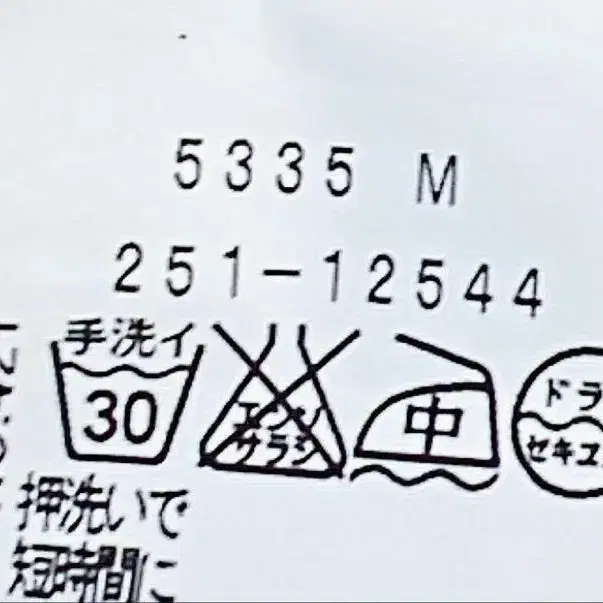 5335 M
251-12544
手洗イ
30
エンソ
サラシ
中
ドラ
セキユ
押洗いで
短時間に